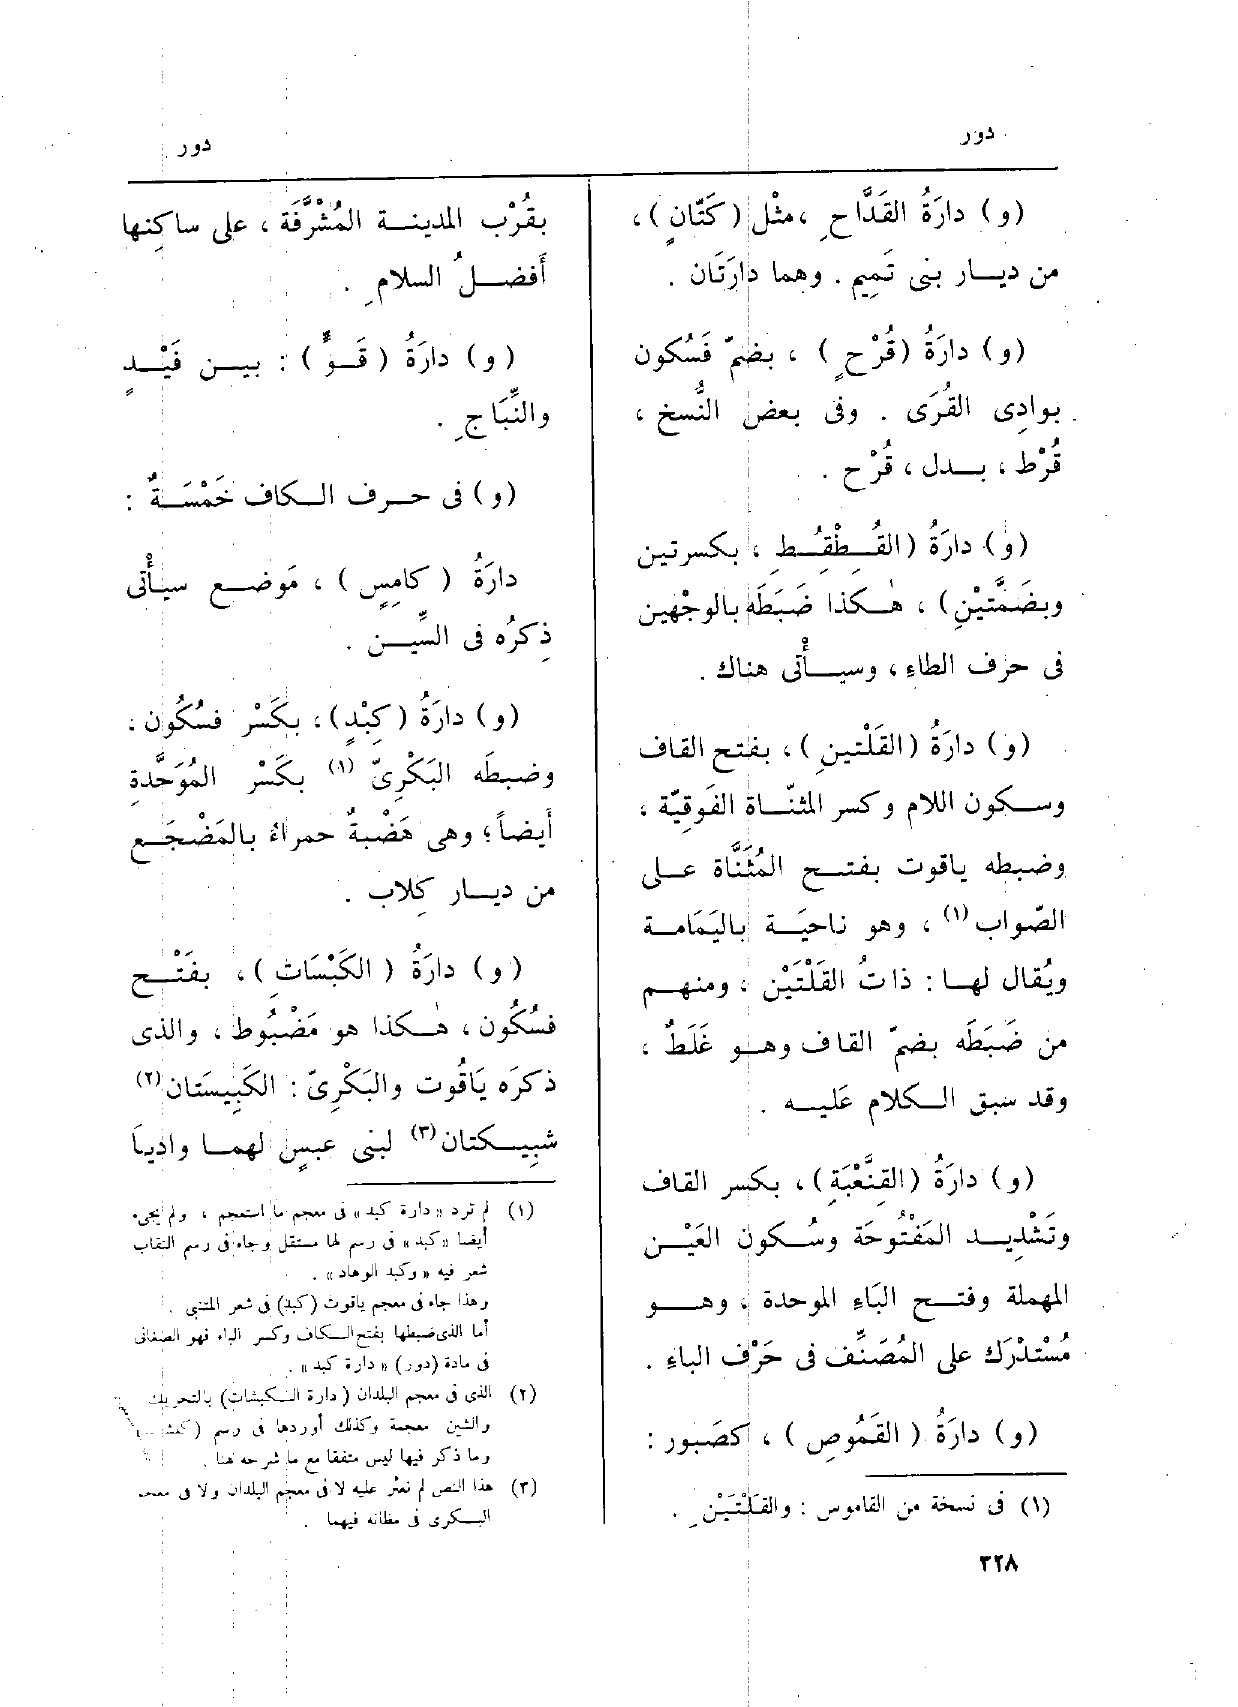 دور
دور
(و) دارَةُ القَدَّاحِ ، مثْل (كَتَّانٍ) ،
من ديار بنى تَمِيمٍ . وهما دارَتَان .
(و) دارَةُ (قُرْحٍ) ، بضمّ فَسُكون
بوادِى القُرَى . وفى بعض النُّسخ ،
قُرْط ، بدل ، قُرْح .
(و) دارَةُ (القُطْقُط ، بكسرتين
وبضَمَّتَيْنِ) ، هٰكذا ضَبَطَه بالوجْهين
فى حرف الطاء ، وسيأْتى هناك .
(و) دارَةُ (القَلْتينِ) ، بفتح القاف
وسكون اللام وكسر المثنّاة الفَوقِيّة ،
وضبطه ياقوت بفتح المُثَنَّاة على
الصّواب (١) ، وهو ناحيَة باليَمَامة
ويُقال لها : ذاتُ القَلْتَيْن ، ومنهم
من ضَبَطَه بضمّ القاف وهو غَلَطٌ ،
وقد سبق الكلام عَليه .
(و) دارَةُ (القِنَّعْبَةِ) ، بكسر القاف
وتَشْدِيد المَفْتُوحَة وسُكون العَيْن
المهملة وفتح البَاءِ الموحدة ، وهو
مُسْتَدْرَك على المُصَنِّف فى حَرْف الباءِ .
(و) دارَةُ (القَمُوصِ) ، كصَبور :
(١) فى نسخة من القاموس : والقَلْتَيْنِ .
٣٢٨
بقُرْب المدينة المُشْرَّفَة ، على ساكِنها
أَفضلُ السلامِ .
(و) دارَةُ (قَوٍّ) : بين فَيْدٍ
والنِّبَاجِ .
(و) فى حرف الكاف خَمْسَةٌ :
دارَةُ (كامِسٍ) ، مَوضع سيأْتى
ذِكرُه فى السِّين .
(و) دارَةُ (كِبْدٍ) ، بكَسْر فسُكُون .
وضبطَه البَكْرِىّ (١) بكَسْر المُوَحَّدةِ
أَيضاً ؛ وهى هَضْبةٌ حمراءُ بالمَضْجَع
من ديار كِلاب .
(و) دارَةُ (الكَبْسَاتِ) ، بفَتْح
فسُكُون ، هٰكذا هو مَضْبُوط ، والذى
ذكرَه يَاقُوت والبَكْرِىّ : الكَبِيسَتان (٢)
شبِيكتان (٣) لبنى عبسٍ لهما واديا
(١) لم ترد «دارة كبد» فى معجم ما استعجم ، ولم يجىء
أيضا «كبد» فى رسم لها مستقل وجاء فى رسم النقاب
شعر فيه «وكبد الوهاد» .
وهذا جاء فى معجم ياقوت (كبد) فى شعر المتنبى .
أما الذى ضبطها بفتح الكاف وكسر الباء فهو الصغانى
فى مادة (دور) «دارة كبد» .
(٢) الذى فى معجم البلدان (دارة الكبشات) بالتحريك
والشين معجمة وكذلك أوردها فى رسم
وما ذكر فيها ليس متفقا مع ما شرحه هنا .
(٣) هذا النص لم نعثر عليه لا فى معجم البلدان ولا فى معجم
البكرى فى مظانه فيهما .